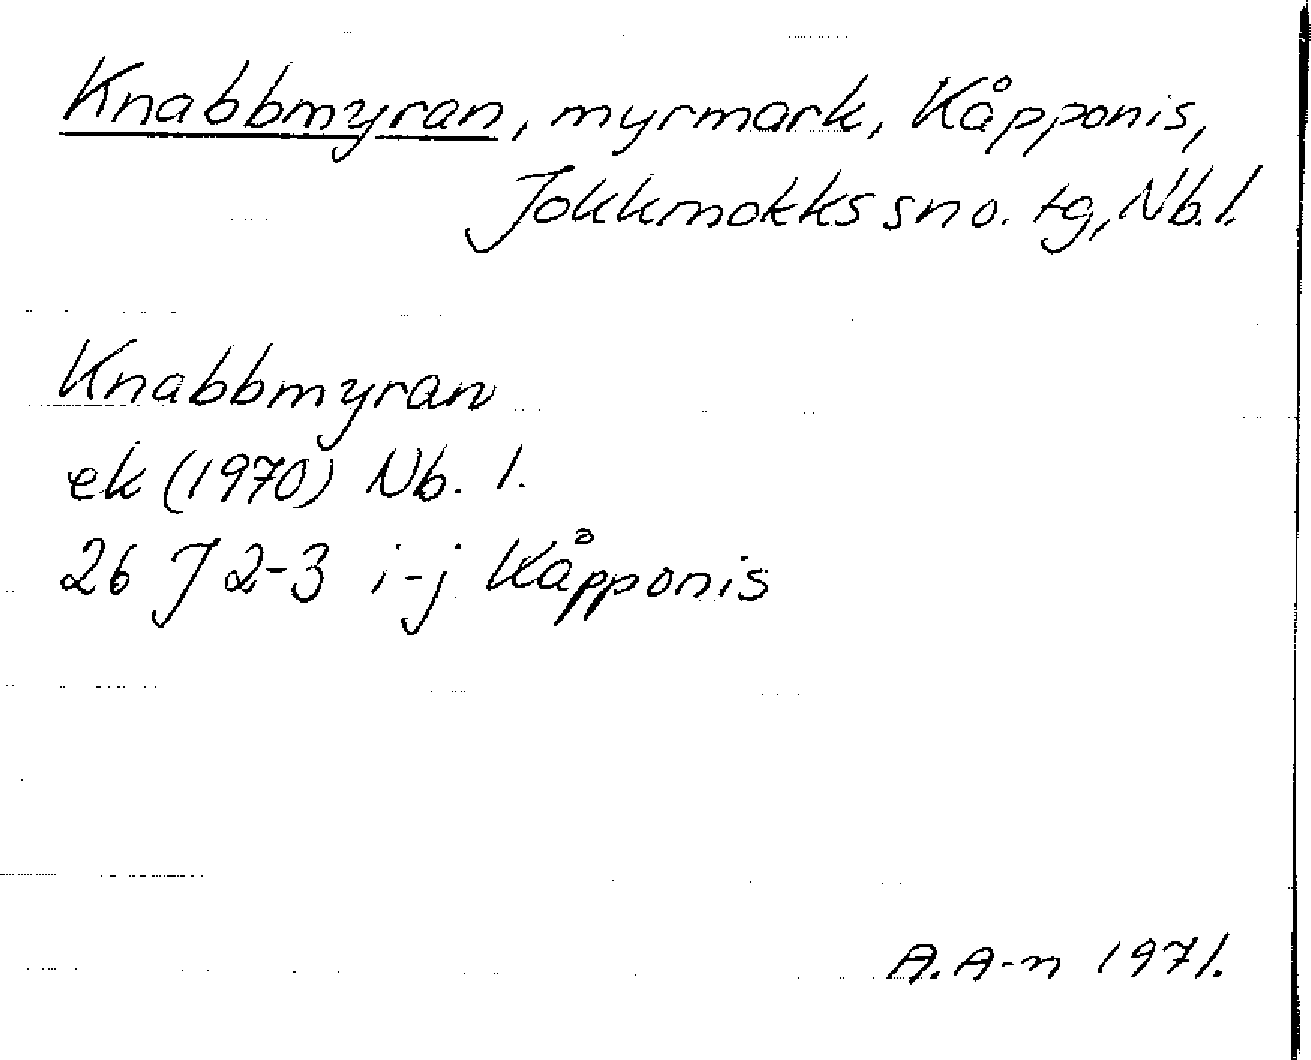 Knabbmyran, myrmark, Kåpponis,
Jokkmokks sn o. tg, Nb. l.
Knabbmyran
ek (1970) Nb. l.
26 J 2-3 i-j Kåpponis
A. A-n 1971.